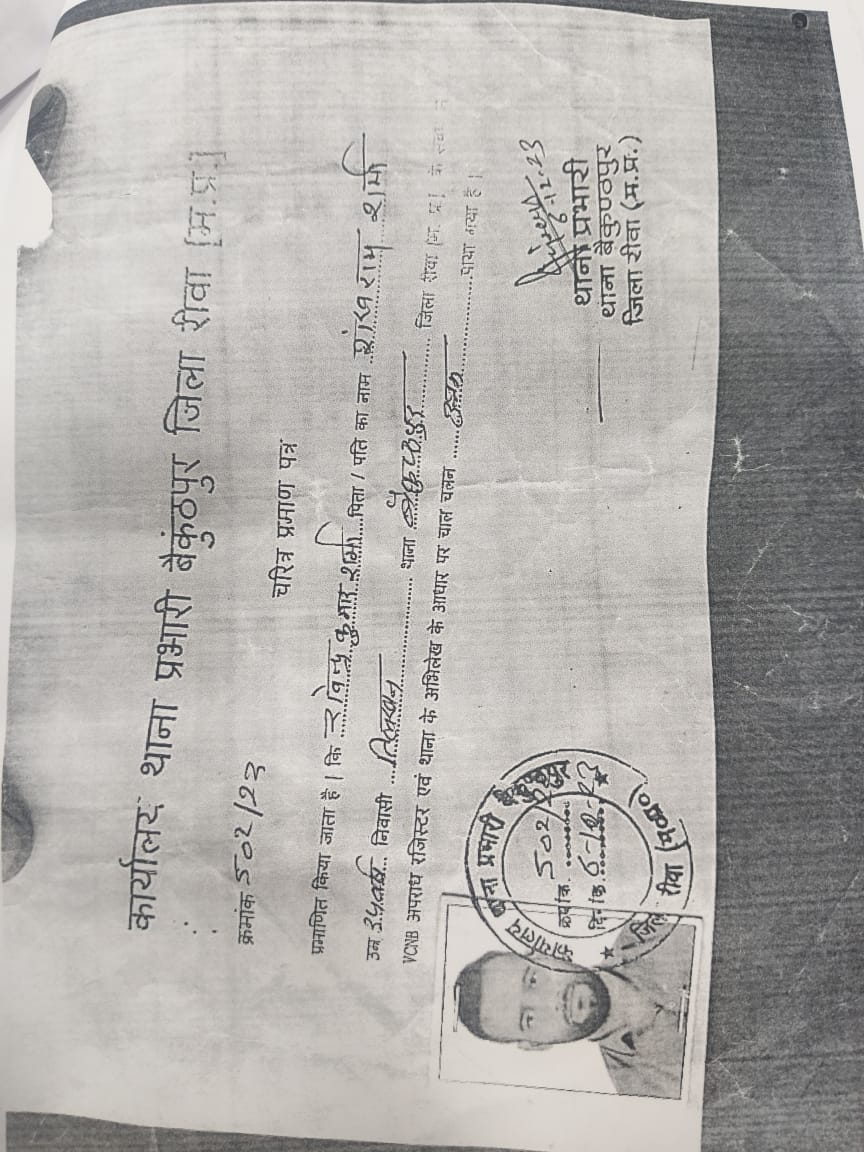 कार्यालय थाना प्रभारी बैकुंठपुर जिला रीवा [म.प्र.]
क्रमांक 502/23
चरित्र प्रमाण पत्र
प्रमाणित किया जाता है। कि रविन्द्र कुमार शर्मा पिता / पति का नाम शर्मा
उम्र निवासी थाना बैकुण्ठपुर जिला रीवा [म. प्र.] के
VCNB अपराध रजिस्टर एवं थाना के अभिलेख के आधार पर चाल चलन पाया गया है।
थाना प्रभारी
थाना बैकुण्ठपुर
जिला रीवा (म.प्र.)
कार्यालय थाना प्रभारी
क्रमांक 502/23
दिनांक 6-12-23
जिला रीवा (म०प्र०)